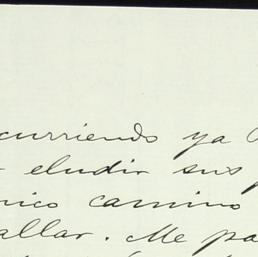 curriendo ya
eludir sus
nico camino
allar. Me pa